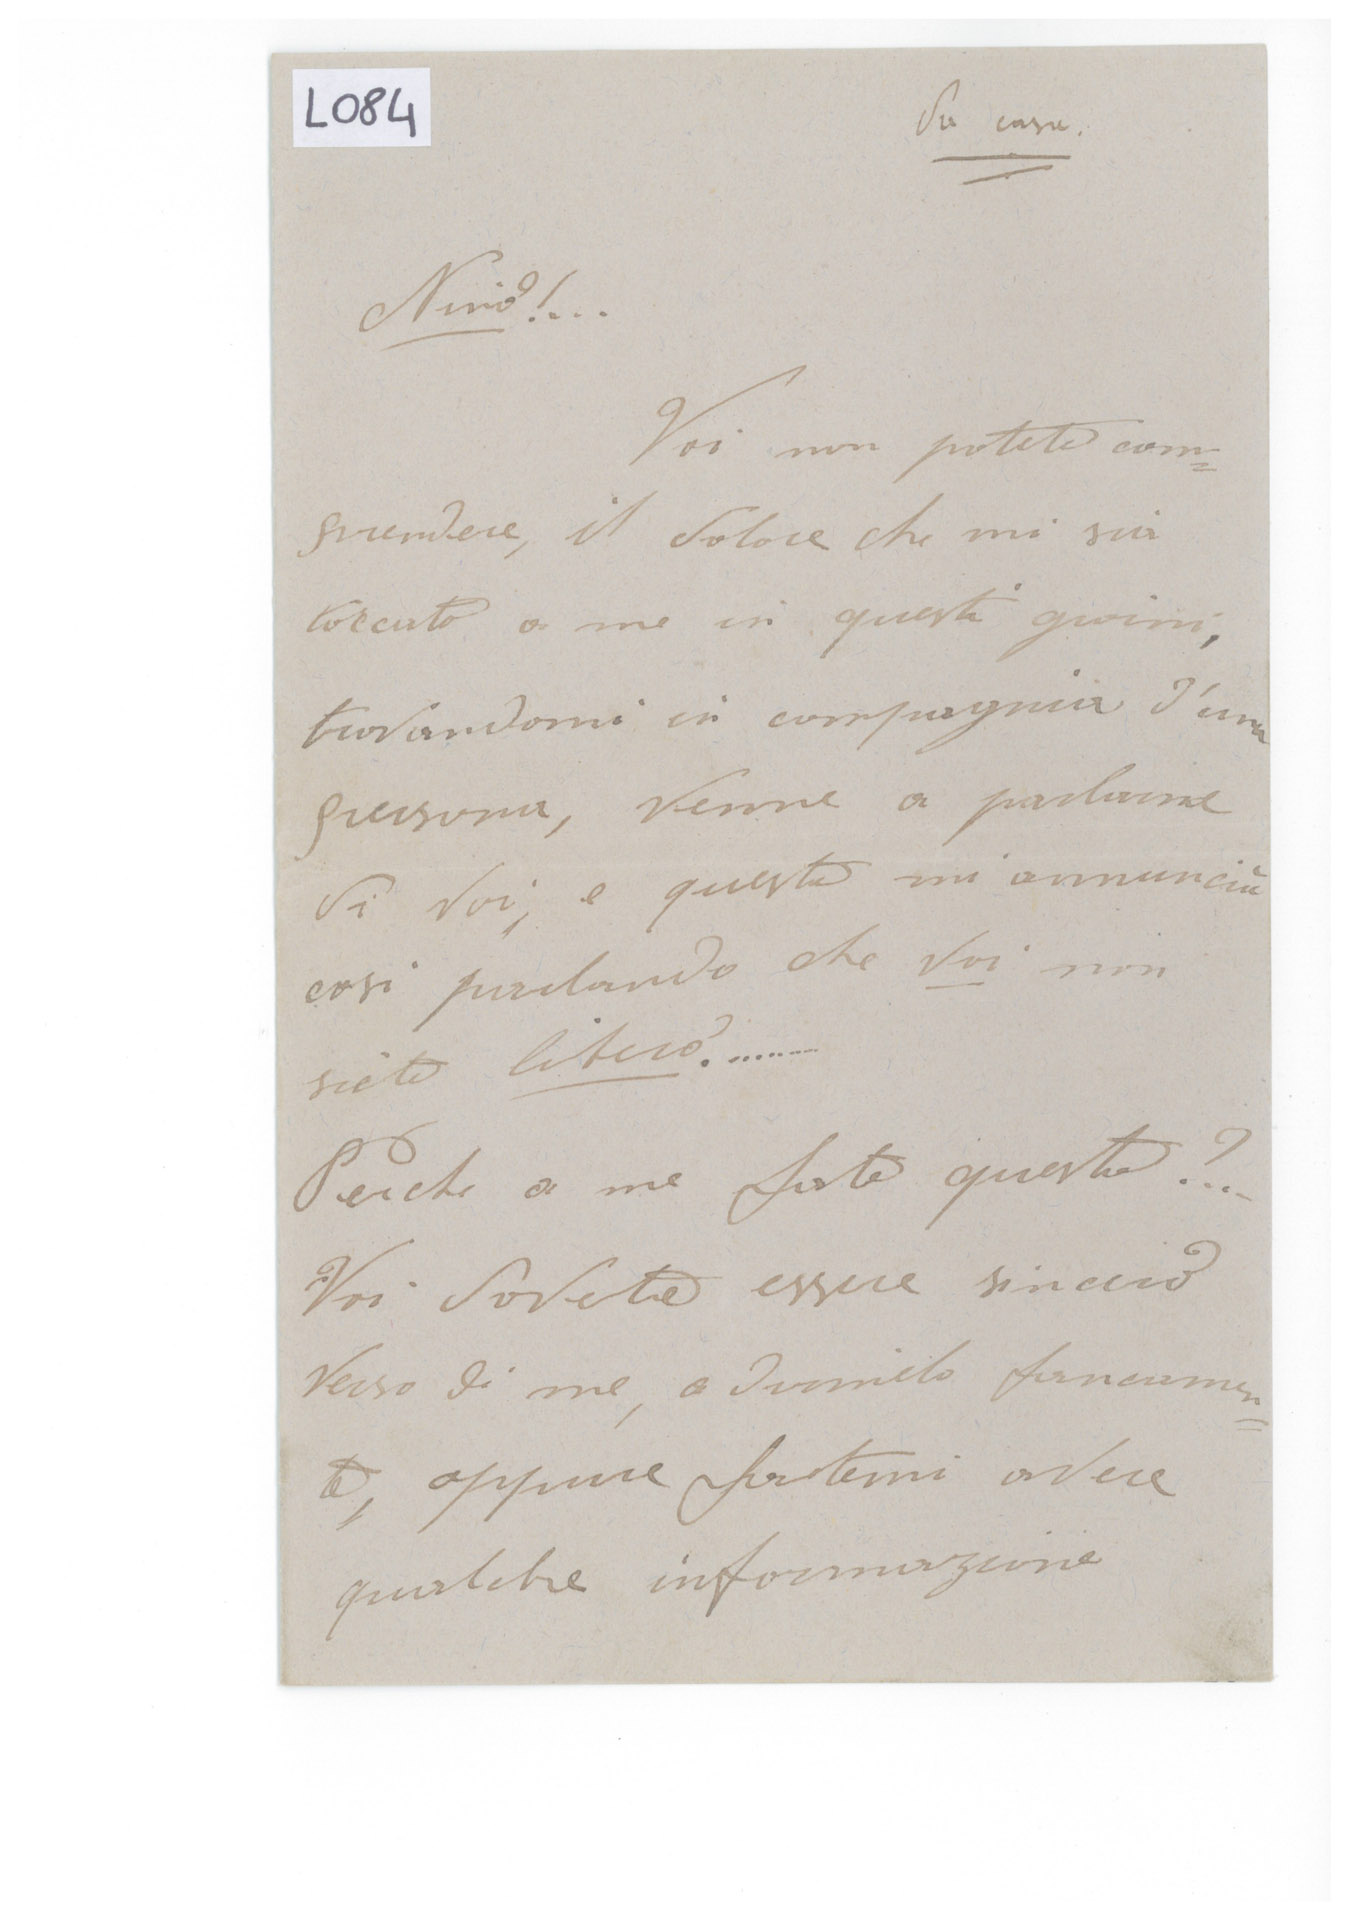 L084
Da casa.
Nino!...
Voi non potete com=
prendere, il dolore che mi sia
toccato a me in questi giorni,
trovandomi in compagnia d'una
persona, venne a parlarme
di voi, e questa mi annunciò
cosi parlando che voi non
siete libero........
Perche a me fate questo?...
Voi dovete essere sincero
verso di me, e dirmelo francamen=
te, oppure fatemi avere
qualche informazione